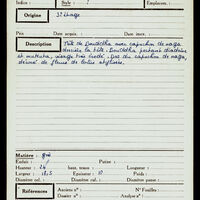 Indice :
Style : ?
Emplacem. :
Origine
Prix
Date acquis. :
Date inscr. :
Description
Tête de Bouddha avec capuchon de naga
derrière la tête. Bouddha portant diadème
et mukuta, visage très érodé. Dos du capuchon de naga,
décoré de fleurs de lotus stylisées.
Matière : grès
Enfoui :
Patine :
Hauteur : 24
haut. tenon :
Longueur :
Largeur : 18,5
Epaisseur : 10
Poids :
Diamètre sup. :
Diamètre col. :
Diamètre panse :
Références
Ancien n° :
N° Fouilles :
Dossier n° :
Analyse n° :